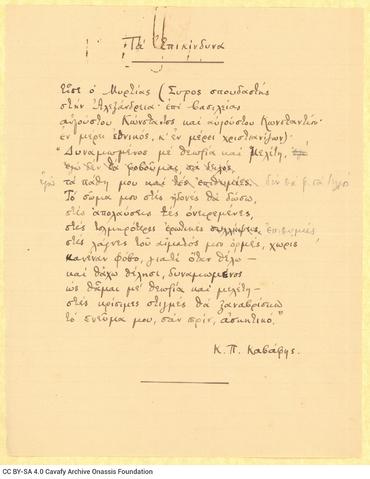 Τα Επικίνδυνα
Είπε ο Μυρτίας (Σύρος σπουδαστής
στην Αλεξάνδρεια· επί βασιλείας
αυγούστου Κώνσταντος και αυγούστου Κωνσταντίου·
εν μέρει εθνικός, κ' εν μέρει χριστιανίζων)·
"Δυναμωμένος με θεωρία και μελέτη,
εγώ δεν θα φοβούμαι, σα δειλός,
εγώ τα πάθη μου και τες επιθυμίες δεν θα φ. σα δειλό
Το σώμα μου στες ηδονές θα δώσω,
στες απολαύσεις τες ονειρεμένες,
στες τολμηρότερες ερωτικές επιθυμίες
στες λάγνες του αίματός μου ορμές, χωρίς
κανέναν φόβο, γιατί όταν θέλω—
και θάχω θέλησι, δυναμωμένος
ως θάμαι με θεωρία και μελέτη—
στες κρίσιμες στιγμές θα ξαναβρίσκω
το πνεύμα μου, σαν πριν, ασκητικό."
Κ. Π. Καβάφης.
CC BY-SA 4.0 Cavafy Archive Onassis Foundation